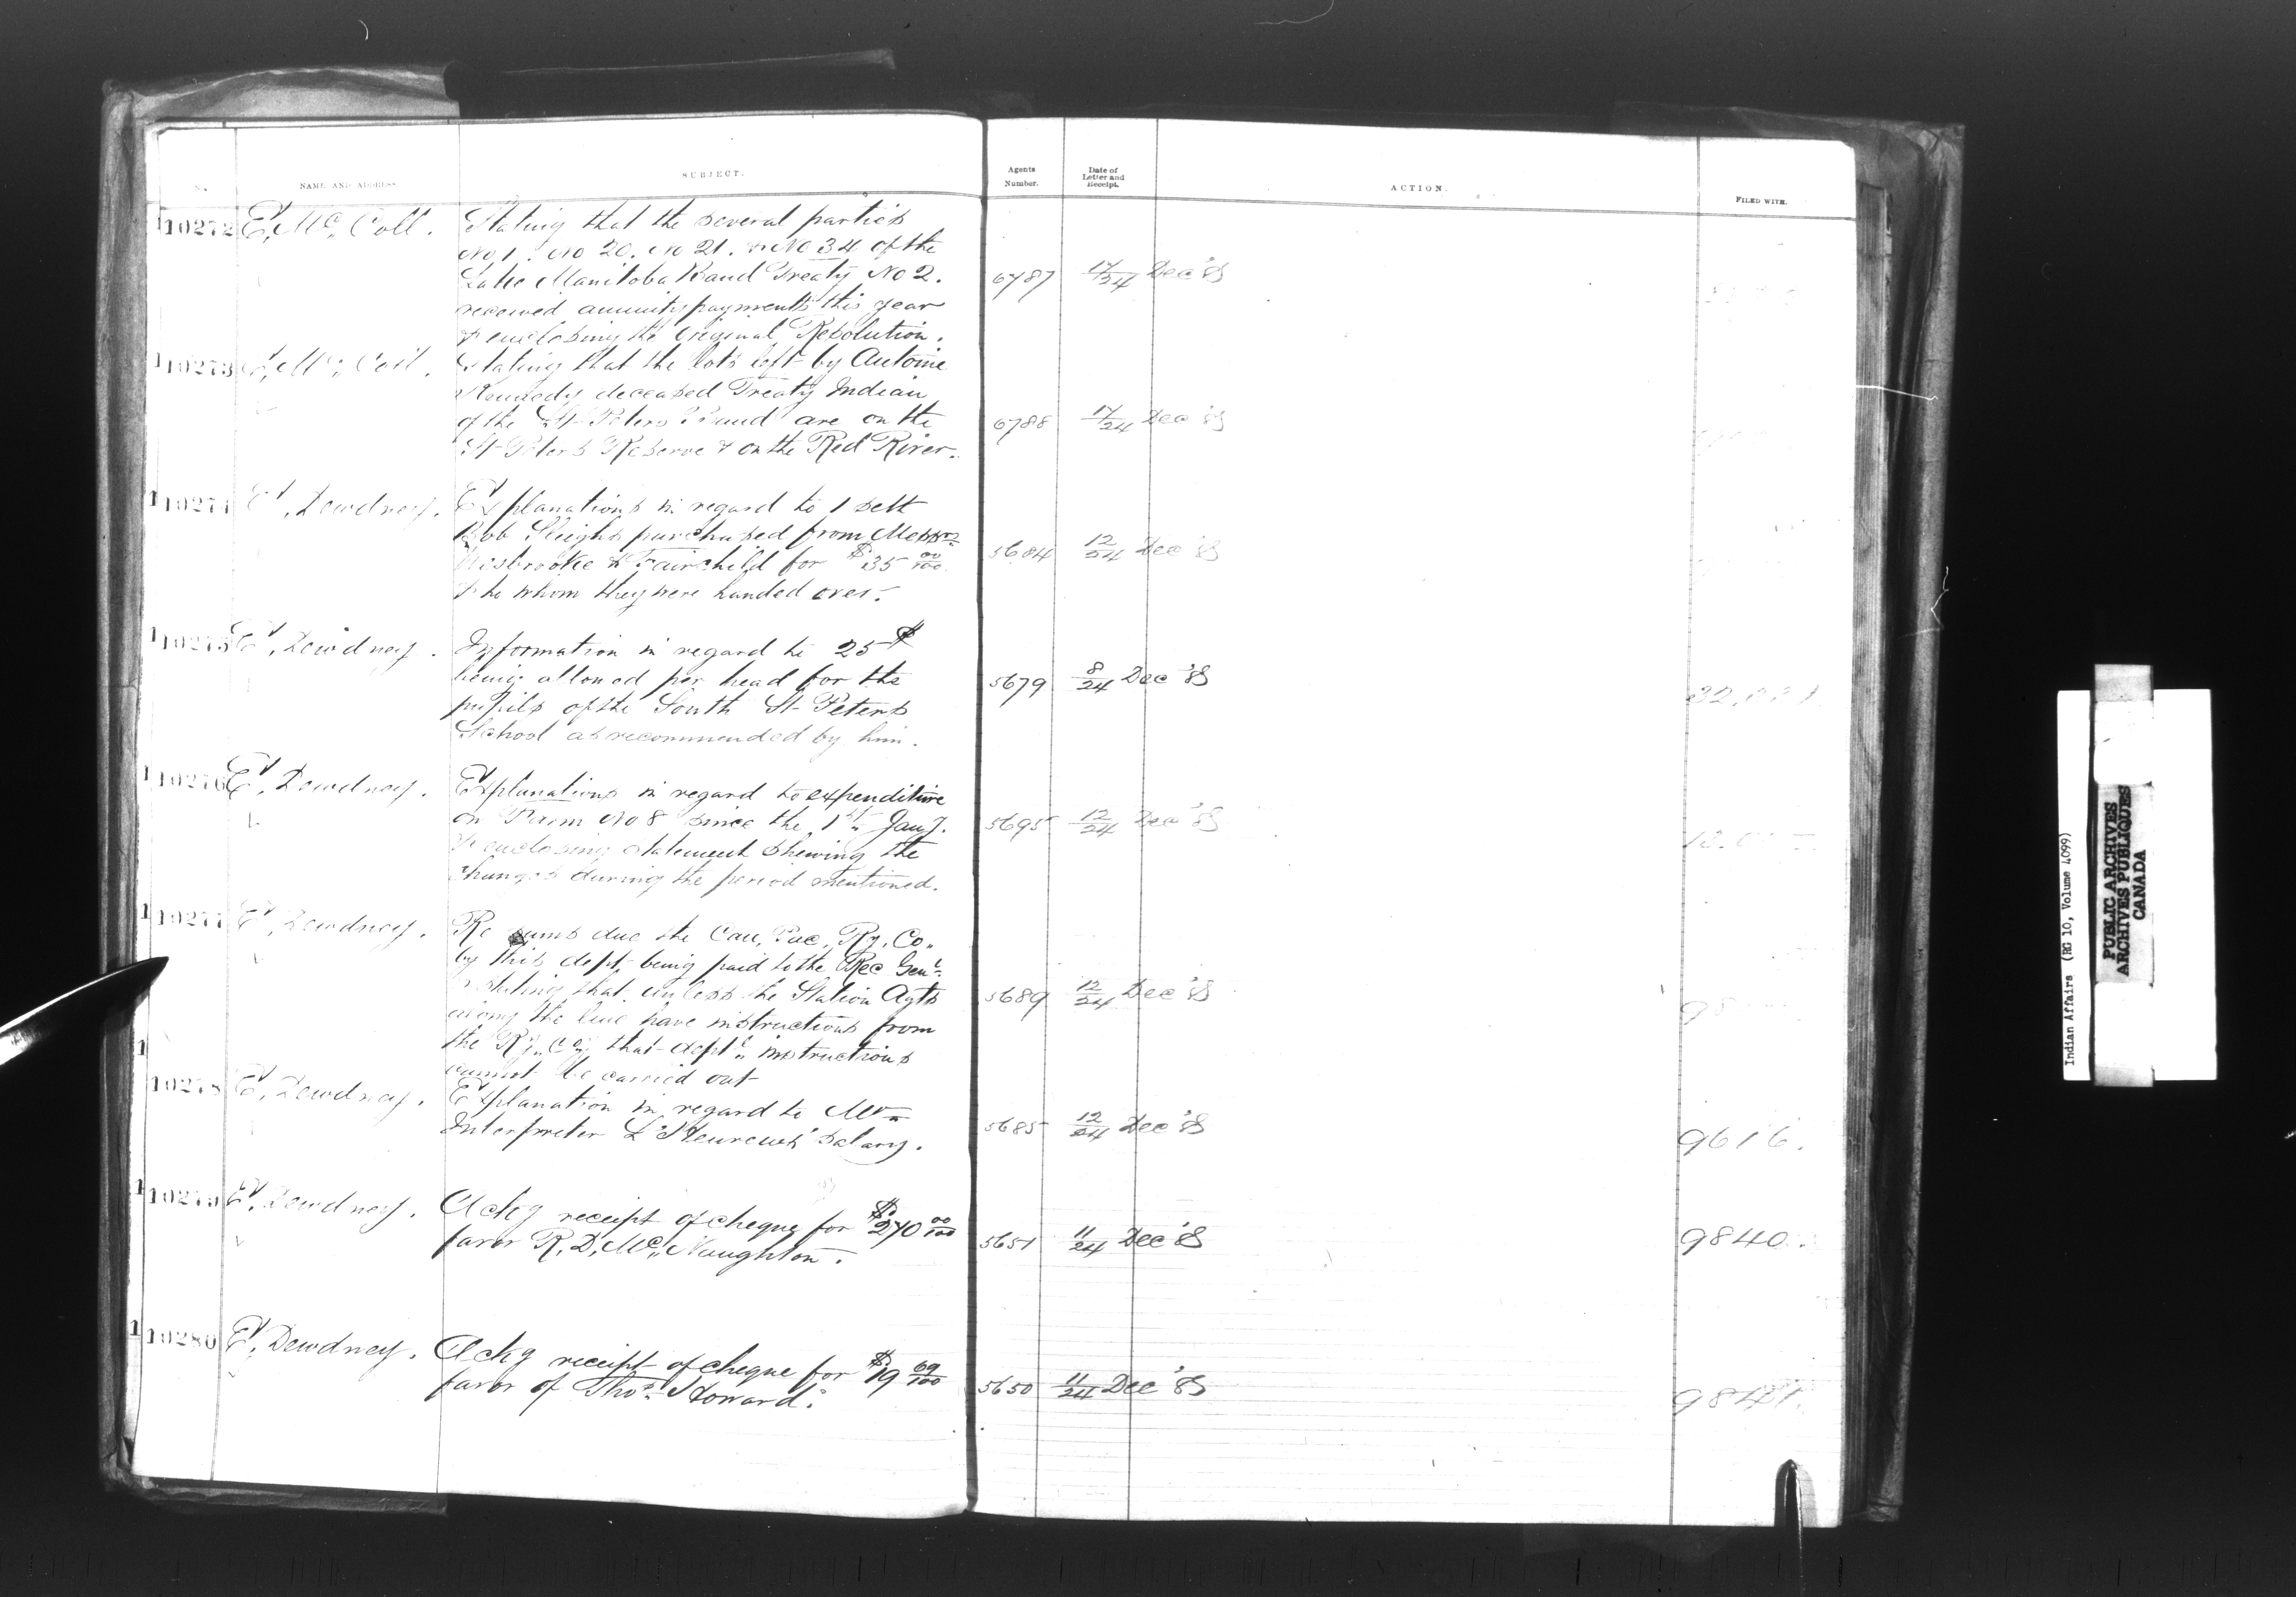 NAME AND ADDRESS.
SUBJECT.
Agents Number.
Date of Letter and Receipt.
ACTION.
FILED WITH.
10272 E. Mc. Coll. Stating that the several parties
No 1. No 20. No 21. & No 34 of the
Lake Manitoba Band Treaty No 2.
received annuity payments this year
& enclosing the original Resolution.
6787 17/24 Dec '8
10273 E. Mc. Coll. Stating that the lots left by Antoine
Kennedy deceased Treaty Indian
of the St Peters Band are on the
St Peters Reserve & on the Red River.
6788 17/24 Dec '8
10274 E. Dewdney. Explanations in regard to 1 sett
Bob Sleighs purchased from Messrs
& Fairchild for $35 00/100
& to whom they were handed over.
5684 12/24 Dec '8
10275 E. Dewdney. Information in regard to 25 $
being allowed per head for the
pupils of the South St Peters
School as recommended by him.
5679 8/24 Dec '8
10276 E. Dewdney. Explanations in regard to expenditure
on Farm No 8 since the 1st Jany.
& enclosing statement shewing the
changes during the period mentioned.
5695 12/24 Dec '8
10277 E. Dewdney. Re sums due the Can. Pac. Ry. Co.
by this dept. being paid to the Rec Genl.
& stating that unless the Station Agts
along the line have instructions from
the Ry. Coy. that deptl. instructions
cannot be carried out
5689 12/24 Dec '8
10278 E. Dewdney. Explanation in regard to Mr.
Interpreter L'Heureux' salary.
5685 12/24 Dec '8
9616.
10279 E. Dewdney. Ackg receipt of cheque for $270 00/100
favor R. D. Mc. Naughton.
5651 11/24 Dec '8
9840.
10280 E. Dewdney. Ackg receipt of cheque for $19 69/100
favor of Thos. Howard.
5650 11/24 Dec '8
9841.
Indian Affairs (RG 10, Volume 4099)
PUBLIC ARCHIVES
ARCHIVES PUBLIQUES
CANADA